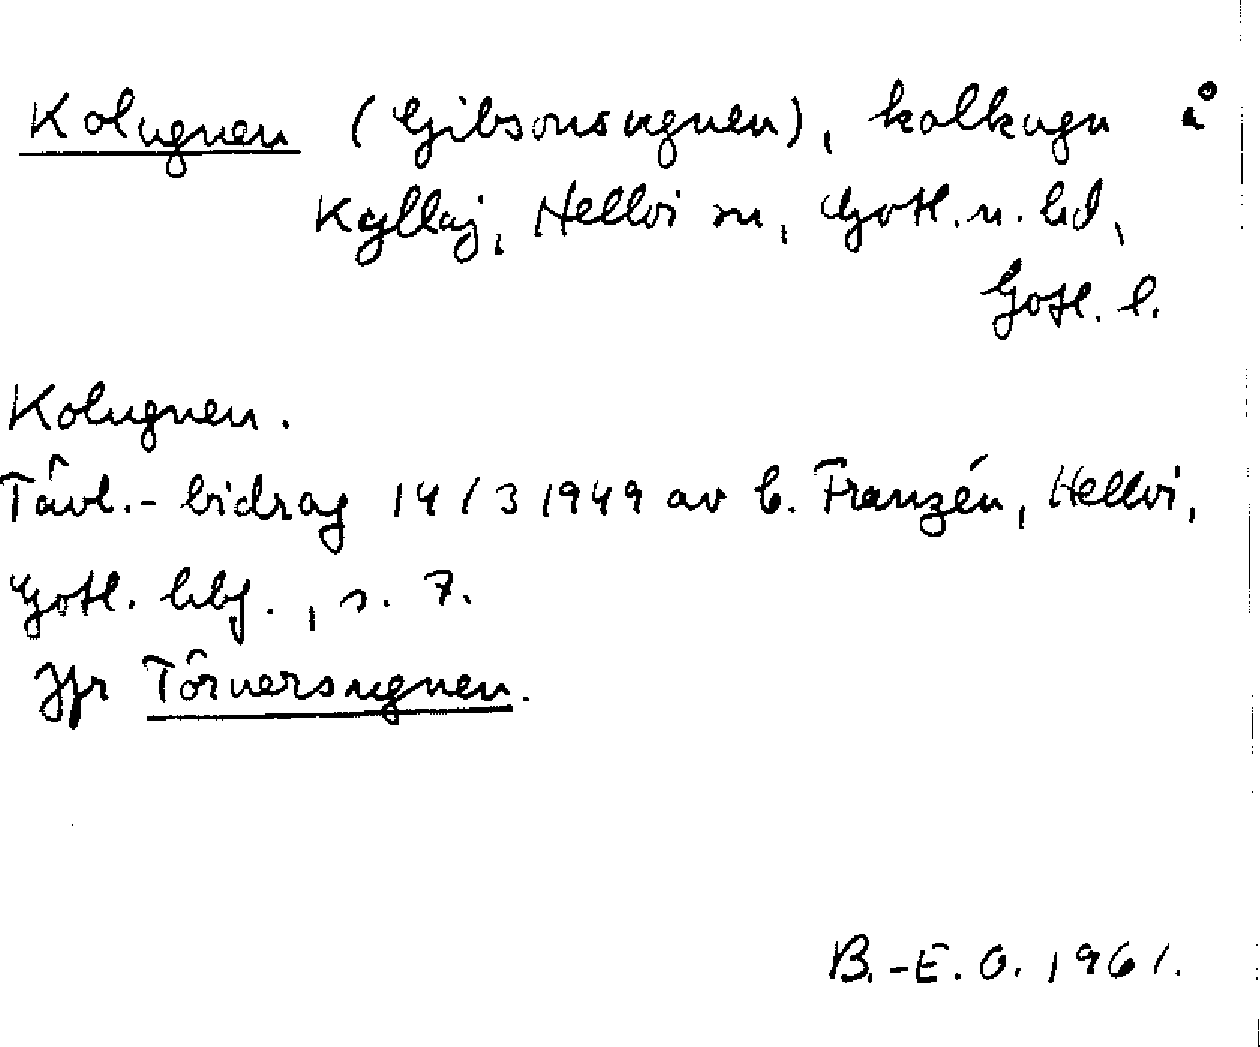 Kolugnen (Gibsonsugnen), kalkugn å
Kyllaj, Hellvi sn, Gotl. n. hd,
Gotl. l.
Kolugnen.
Tävl.-bidrag 14/3 1949 av G. Franzén, Hellvi,
Gotl. hbf., s. 7.
Jfr Törnersugnen.
B.-E. O. 1961.